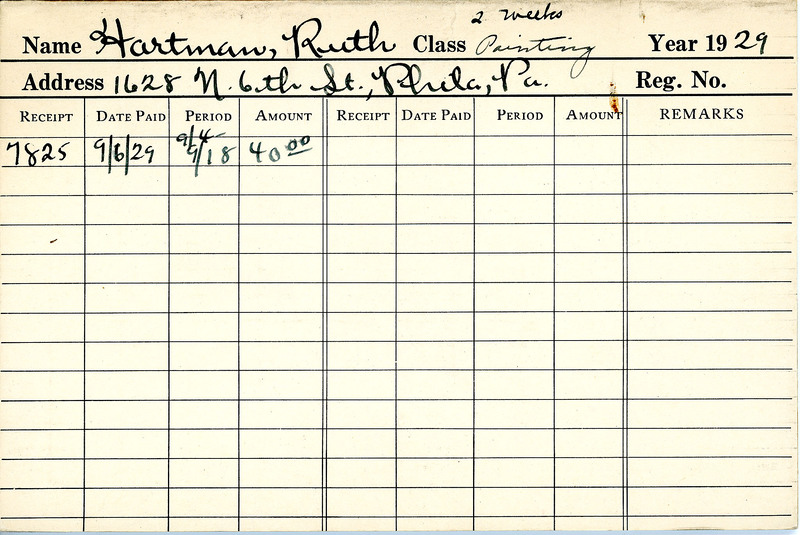 2 weeks
Name Hartman, Ruth Class Painting Year 1929
Address 1628 N. 6th St., Phila, Pa. Reg. No.
RECEIPT DATE PAID PERIOD AMOUNT RECEIPT DATE PAID PERIOD AMOUNT REMARKS
9/4-
7825 9/6/29 9/18 40.00